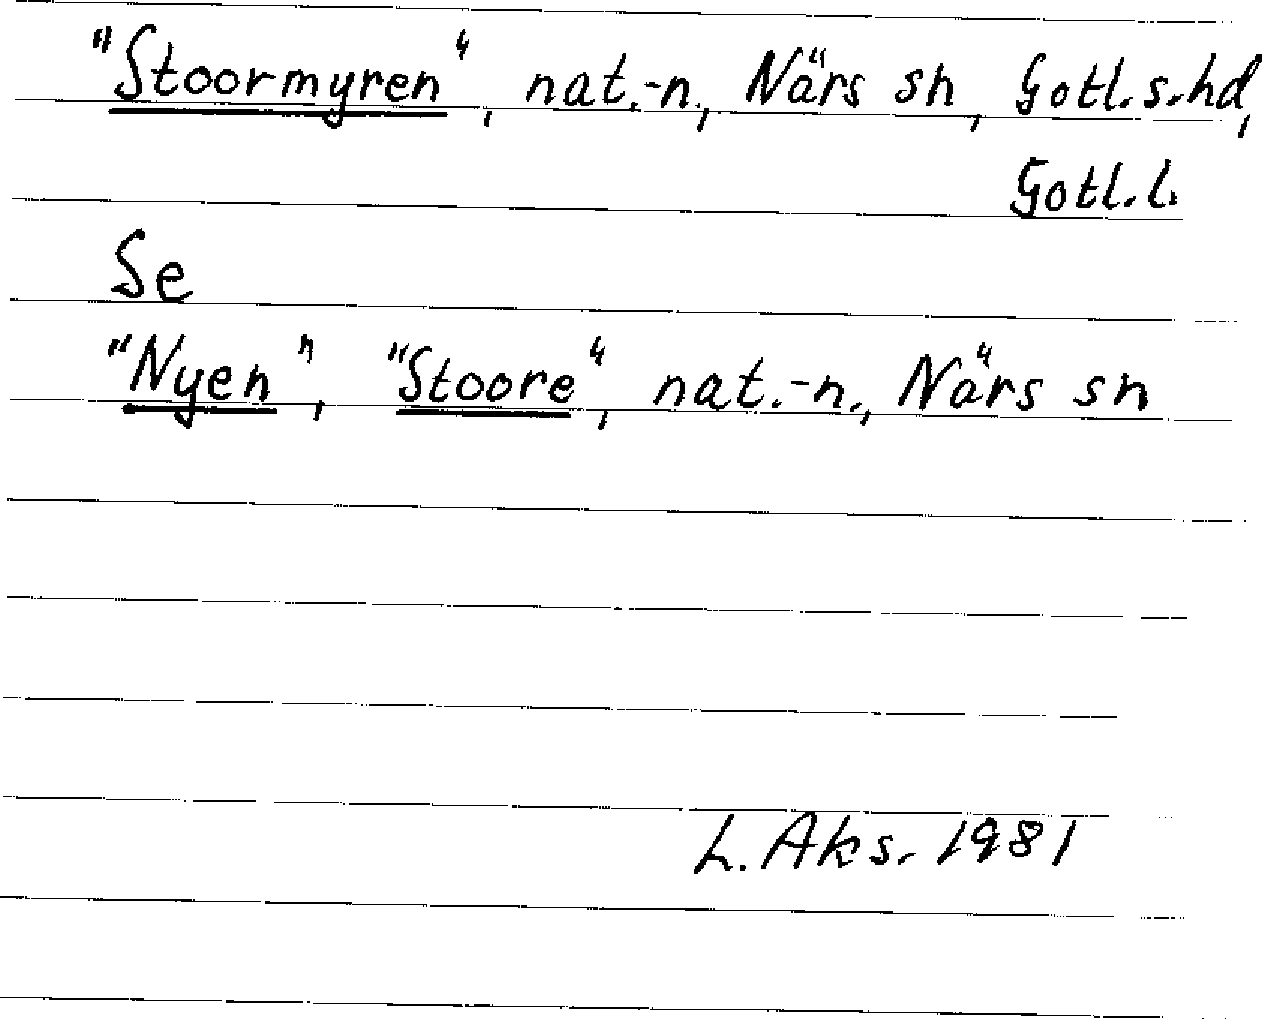 "Stoormyren", nat.-n., Närs sn, Gotl.s.hd,
Gotl.l.
Se
"Nyen", "Stoore", nat.-n., Närs sn
L. Aks. 1981